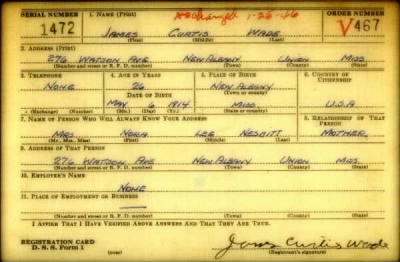 SERIAL NUMBER 1. NAME (Print) Discharged 1-25-46 ORDER NUMBER
1472 JAMES CURTIS WADE V467
(First) (Middle) (Last)
2. ADDRESS (Print)
276 WATSON AVE NEW ALBANY UNION MISS
(Number and street or R. F. D. number) (Town) (County) (State)
3. TELEPHONE 4. AGE IN YEARS 5. PLACE OF BIRTH 6. COUNTRY OF CITIZENSHIP
NONE 26 NEW ALBANY
DATE OF BIRTH (Town or county)
MAY 6 1914 MISS. U.S.A
(Exchange) (Number) (Mo.) (Day) (Yr.) (State or country)
7. NAME OF PERSON WHO WILL ALWAYS KNOW YOUR ADDRESS 8. RELATIONSHIP OF THAT PERSON
MRS NORA LEE NESBITT MOTHER
(Mr., Mrs., Miss) (First) (Middle) (Last)
9. ADDRESS OF THAT PERSON
276 WATSON AVE NEW ALBANY UNION MISS.
(Number and street or R. F. D. number) (Town) (County) (State)
10. EMPLOYER'S NAME
NONE
11. PLACE OF EMPLOYMENT OR BUSINESS
(Number and street or R. F. D. number) (Town) (County) (State)
I AFFIRM THAT I HAVE VERIFIED ABOVE ANSWERS AND THAT THEY ARE TRUE.
REGISTRATION CARD James Curtis Wade
D. S. S. Form 1 (over) (Registrant's signature)